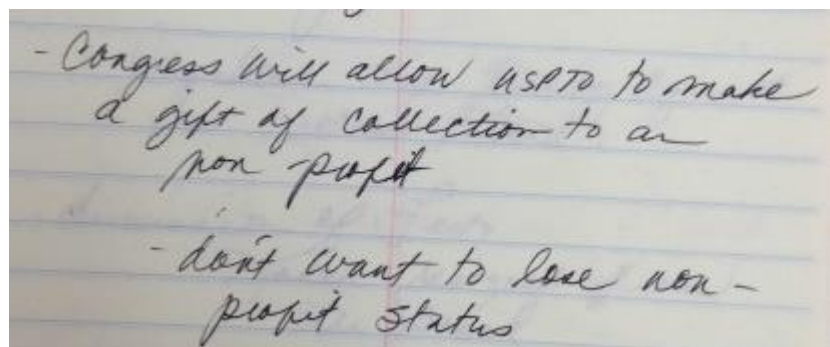 - Congress will allow USPTO to make
a gift of collection to an
non profit
- don't want to lose non-
profit status